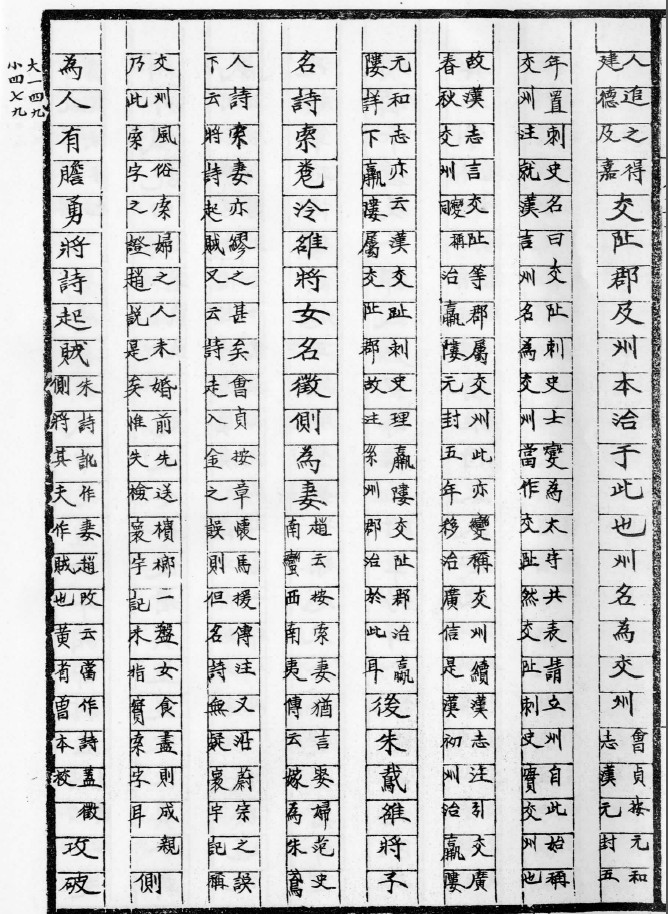 人追之得
建德及嘉
交阯郡及州本治于此也州名為交州
會貞按元和
志漢元封五
年置刺史名曰交阯刺史士燮為太守共表請立州自此始稱
交州注就漢言州名為交州當作交阯然交阯刺史實交州也
故漢志言交阯等郡屬交州此亦變稱交州續漢志注引交廣
春秋交州變稱治羸𨻻元封五年移治廣信是漢初州治羸𨻻
元和志亦云漢交阯刺史理羸𨻻交阯郡治羸
𨻻詳下羸𨻻屬交阯郡故注系州郡治於此耳
後朱䳒雒將子
名詩索泠雒將女名徵側為妻
趙云按索妻猶言娶婦范史
南蠻西南夷傳云嫁為朱鳶
人詩索妻亦繆之甚矣會貞按章懷馬援傳注又沿蔚宗之誤
下云將詩起賊又云詩走入金之誤則但名詩無疑寰宇記稱
交州風俗索婦之人未婚前先送檳榔一盤女食盡則成親
乃此索字之證趙說是矣惟失檢寰宇記未指實索字耳
側
為人有膽勇將詩起賊
朱詩訛作妻趙改云當作詩蓋徵
側將其夫作賊也黃省曾本校
攻破
大一四九
小四七九